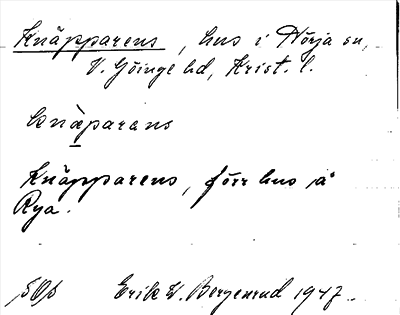 Knäpparens, hus i Nörja sn,
V. Göinge hd, Krist. l.
knäparans
Knäpparens, förr hus å
Rya.
Erik W. Bergenrud 1947.